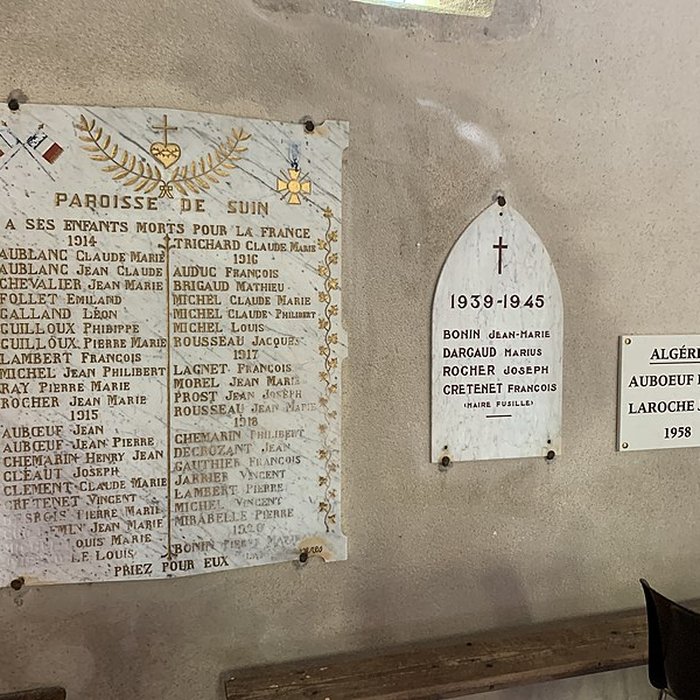 PAROISSE DE SUIN
A SES ENFANTS MORTS POUR LA FRANCE
1914
AUBLANC CLAUDE MARIE
AUBLANC JEAN CLAUDE
CHEVALIER JEAN MARIE
FOLLET EMILAND
GALLAND LÉON
GUILLOUX PHIBIPPE
GUILLOUX PIERRE MARIE
LAMBERT FRANÇOIS
MICHEL JEAN PHILIBERT
RAY PIERRE MARIE
ROCHER JEAN MARIE
1915
AUBŒUF JEAN
AUBŒUF JEAN PIERRE
CHEMARIN HENRY JEAN
CLÉAUT JOSEPH
CLEMENT CLAUDE MARIE
CRETENET VINCENT
PIERRE MARIE
JEAN MARIE
OUIS MARIE
LE LOUIS
TRICHARD CLAUDE MARIE
1916
AUDUC FRANÇOIS
BRIGAUD MATHIEU
MICHEL CLAUDE MARIE
MICHEL CLAUDE PHILIBERT
MICHEL LOUIS
ROUSSEAU JACQUES
1917
LAGNET FRANÇOIS
MOREL JEAN MARIE
PROST JEAN JOSEPH
ROUSSEAU JEAN MARIE
1918
CHEMARIN PHILIBERT
DECROZANT JEAN
GAUTHIER FRANÇOIS
JARRIER VINCENT
LAMBERT PIERRE
MICHEL VINCENT
MIRABELLE PIERRE
1920
BONIN PIERRE MARIE
PRIEZ POUR EUX
1939-1945
BONIN JEAN-MARIE
DARGAUD MARIUS
ROCHER JOSEPH
CRETENET FRANÇOIS
(MAIRE FUSILLÉ)
ALGÉRI
AUBOEUF
LAROCHE
1958